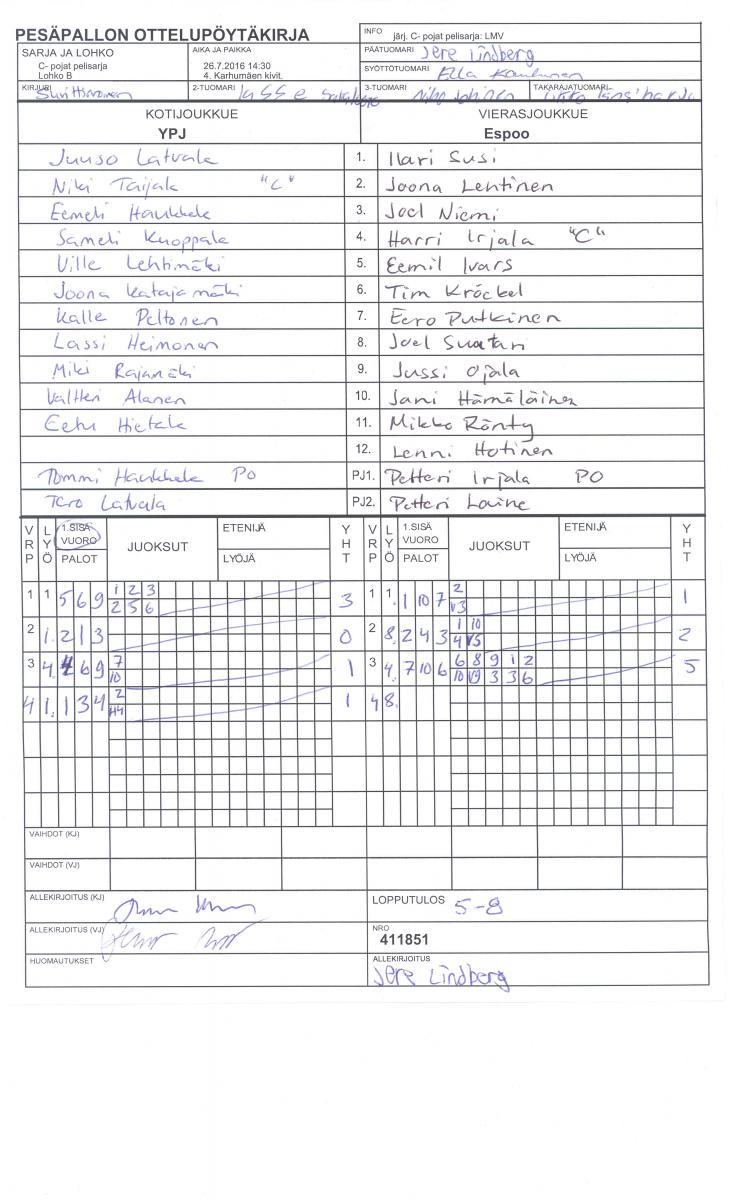 PESÄPALLON OTTELUPÖYTÄKIRJA
INFO järj. C- pojat pelisarja: LMV
SARJA JA LOHKO
C- pojat pelisarja
Lohko B
AIKA JA PAIKKA
26.7.2016 14:30
4. Karhumäen kivit.
PÄÄTUOMARI Jere Lindberg
SYÖTTÖTUOMARI Ella
KIRJURI
2-TUOMARI Lasse
3-TUOMARI
TAKARAJATUOMARI
KOTIJOUKKUE VIERASJOUKKUE
YPJ Espoo
Juuso Latvala 1. Ilari Susi
Niki Taijala "C" 2. Joona Lehtinen
Eemeli Haukkala 3. Joel Niemi
Sameli Knoppala 4. Harri Irjala "C"
Ville Lehtimäki 5. Eemil Ivars
Joona Katajamäki 6. Tim Kröckel
Kalle Peltonen 7. Eero Putkinen
Lassi Heimonen 8. Joel Suutari
Miki Rajamäki 9. Jussi Ojala
Valtteri Alanen 10. Jani Hämäläinen
Eetu Hietala 11. Mikko Rönty
12. Lenni Hotinen
Tommi Haukkala PO PJ1. Petteri Irjala PO
Tero Latvala PJ2. Petteri Laine
VRP LYÖ 1.SISÄ VUORO PALOT JUOKSUT ETENIJÄ LYÖJÄ YHT VRP LYÖ 1.SISÄ VUORO PALOT JUOKSUT ETENIJÄ LYÖJÄ YHT
1 1 5 6 9 1 2 3 3 1 1. 1 10 7 2 1
2 5 6 V3
2 1. 2 1 3 0 2 8. 2 4 3 1 10 2
4 V5
3 4. 6 9 7 1 3 4. 7 10 6 6 8 9 1 2 5
10 10 V9 3 3 6
4 1. 1 3 4 2 1 4 8.
H4
VAIHDOT (KJ)
VAIHDOT (VJ)
ALLEKIRJOITUS (KJ)
LOPPUTULOS 5-8
ALLEKIRJOITUS (VJ)
NRO
411851
HUOMAUTUKSET
ALLEKIRJOITUS
Jere Lindberg